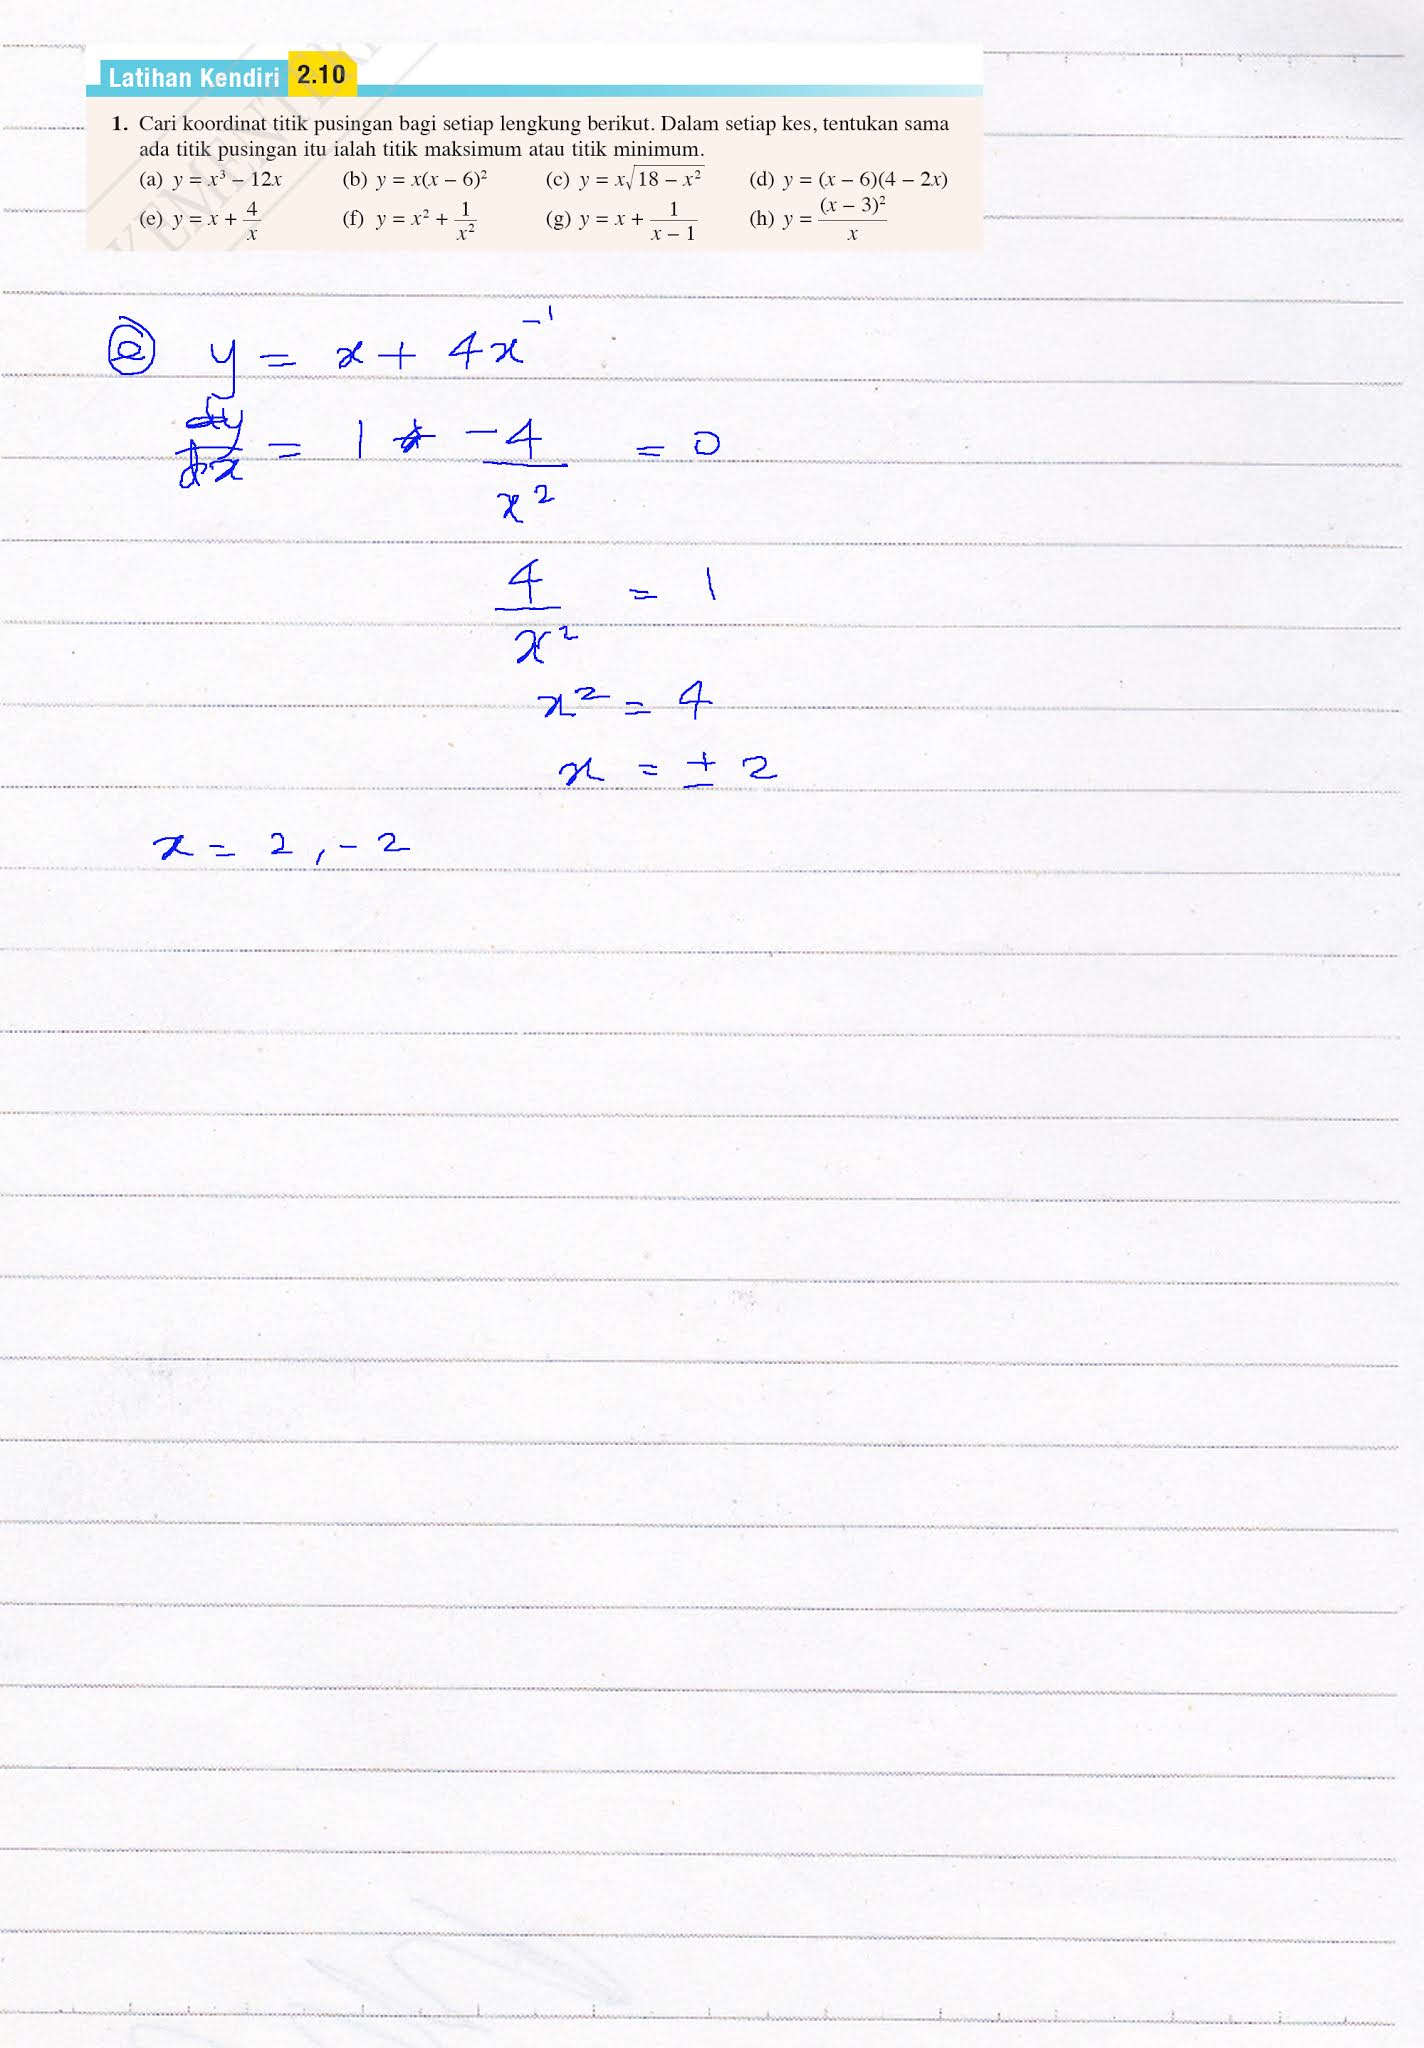 Latihan Kendiri 2.10
1. Cari koordinat titik pusingan bagi setiap lengkung berikut. Dalam setiap kes, tentukan sama
ada titik pusingan itu ialah titik maksimum atau titik minimum.
(a) y = x³ – 12x (b) y = x(x – 6)² (c) y = x√(18 – x²) (d) y = (x – 6)(4 – 2x)
(e) y = x + 4/x (f) y = x² + 1/x² (g) y = x + 1/(x – 1) (h) y = (x – 3)²/x
ⓔ y = x + 4x⁻¹
dy/dx = 1 - 4/x² = 0
4/x² = 1
x² = 4
x = ± 2
x = 2, -2